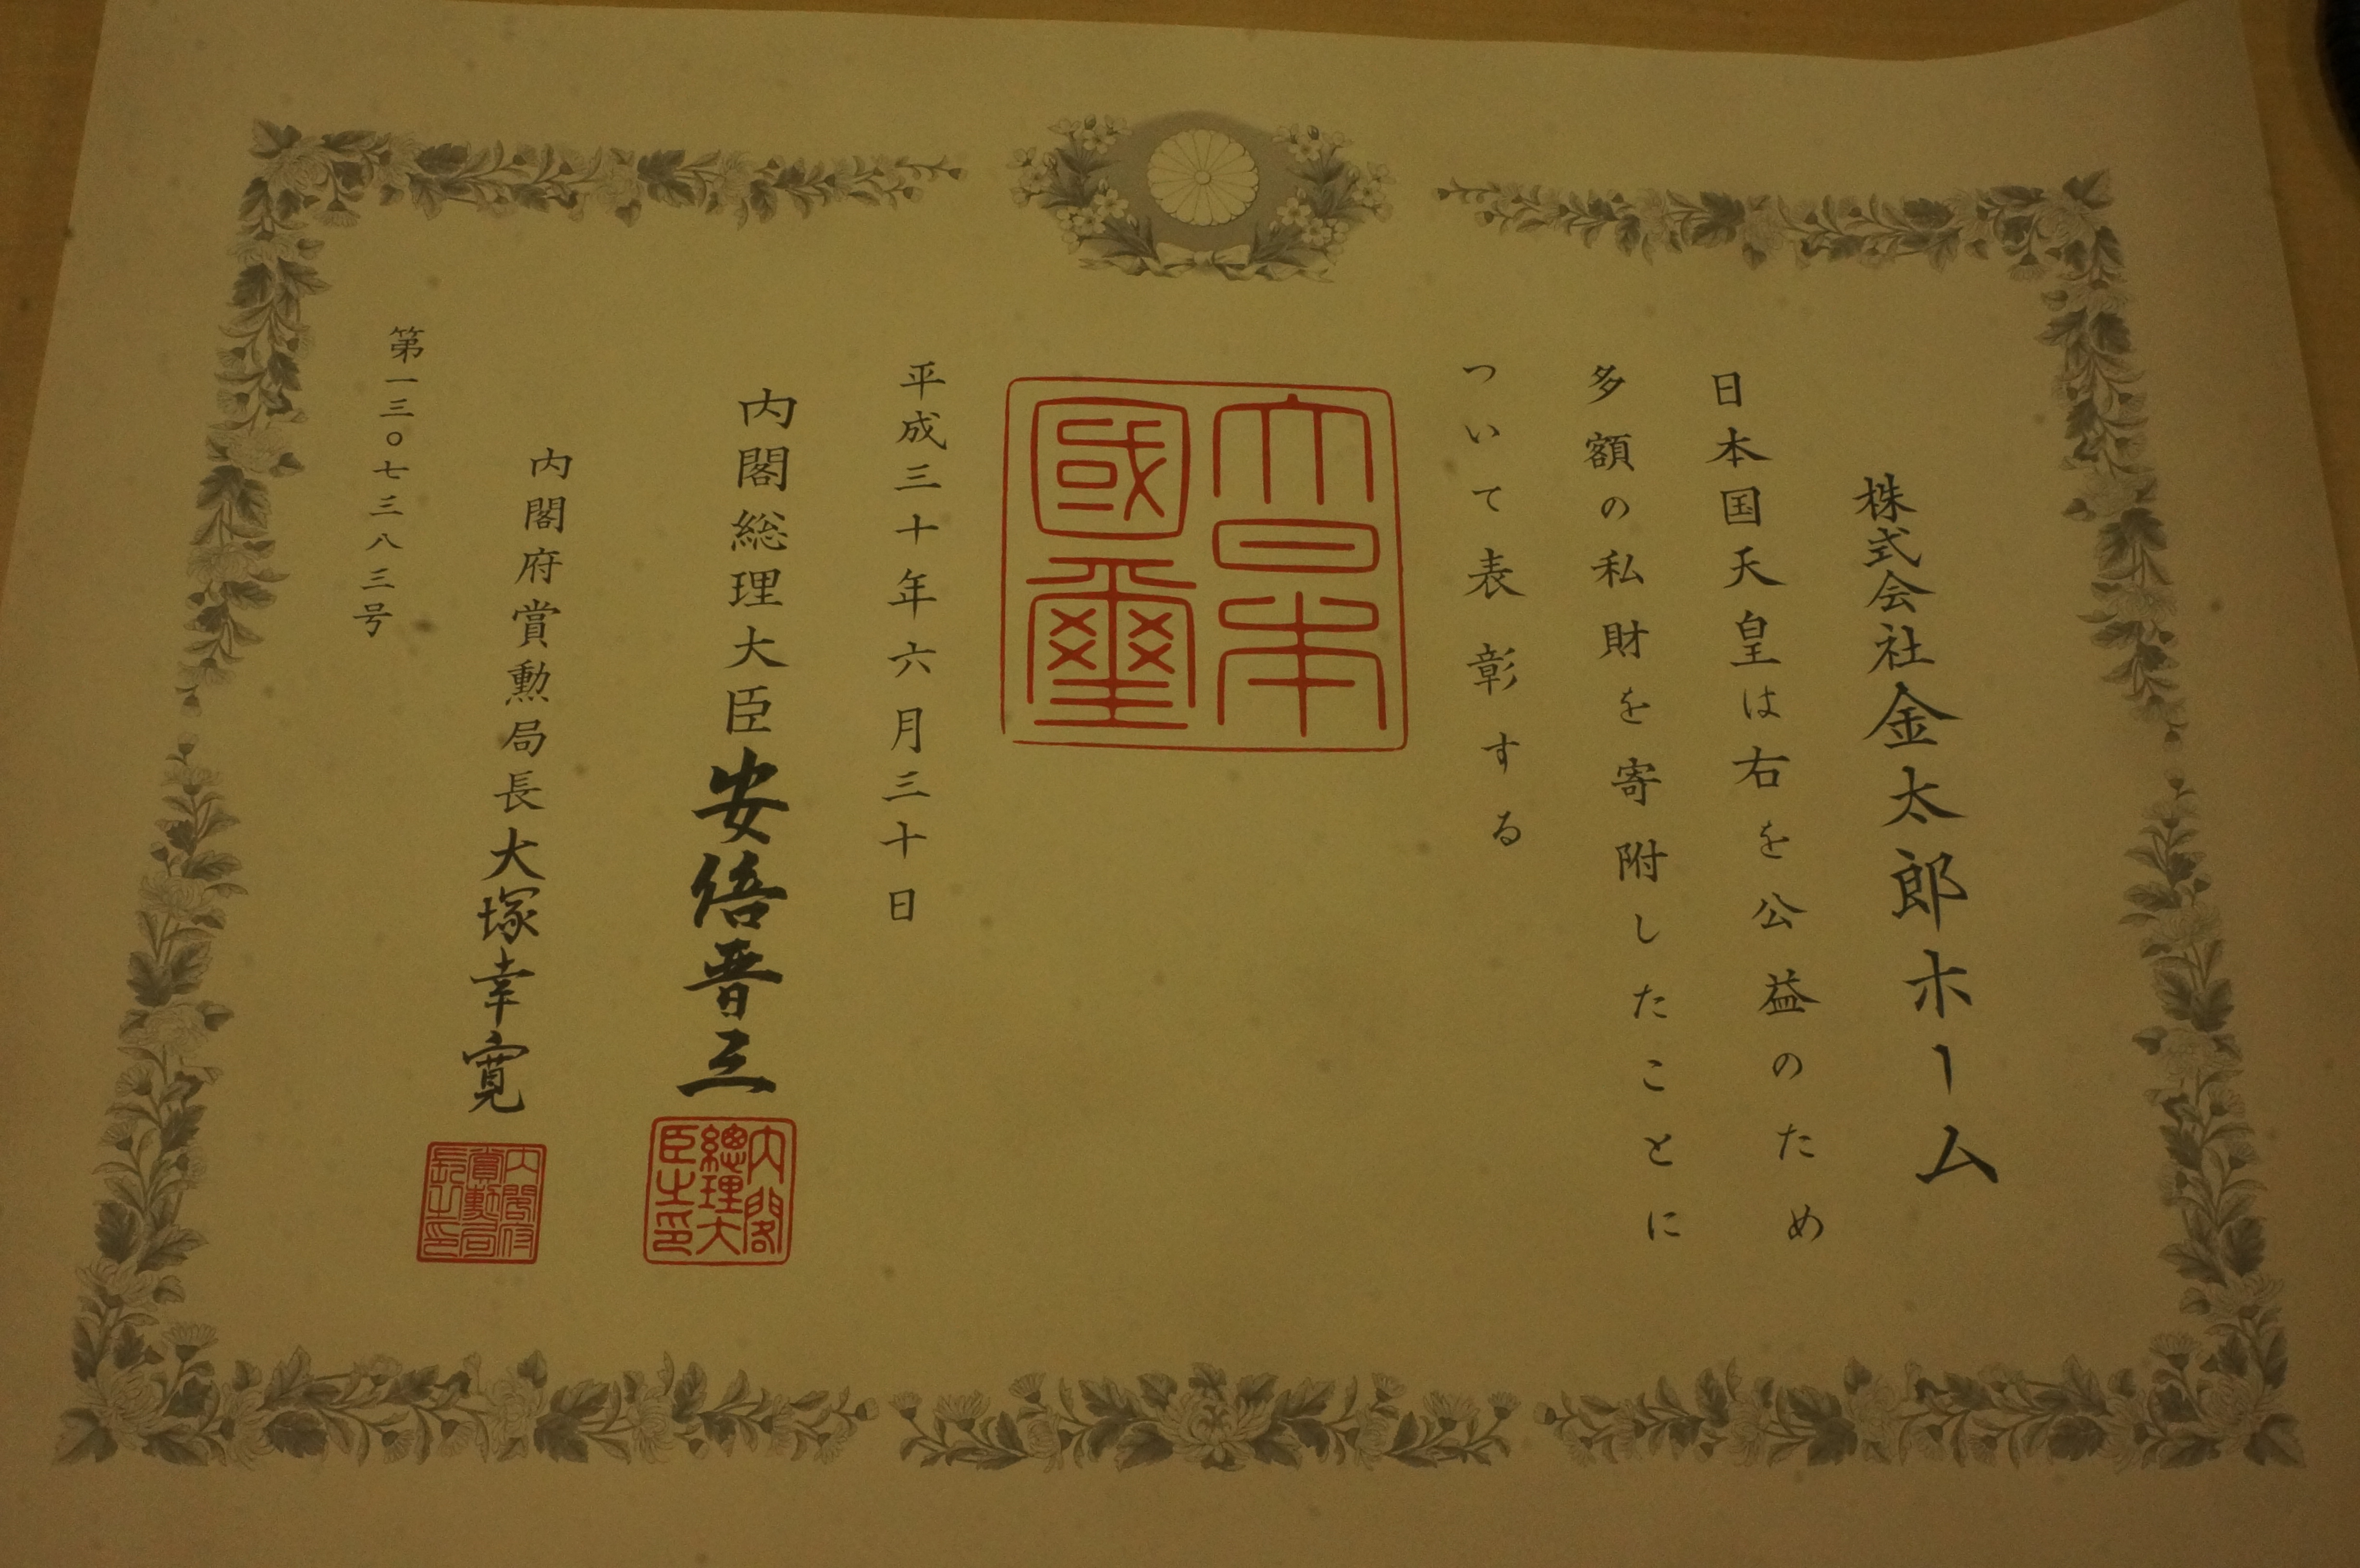 株式会社金太郎ホーム
日本国天皇は右を公益のため
多額の私財を寄附したことに
ついて表彰する
大日本
國璽
平成三十年六月三十日
内閣総理大臣安倍晋三
内閣
總理大
臣之印
内閣府賞勲局長大塚幸寛
内閣府
賞勳局
長之印
第一三〇七三八三号